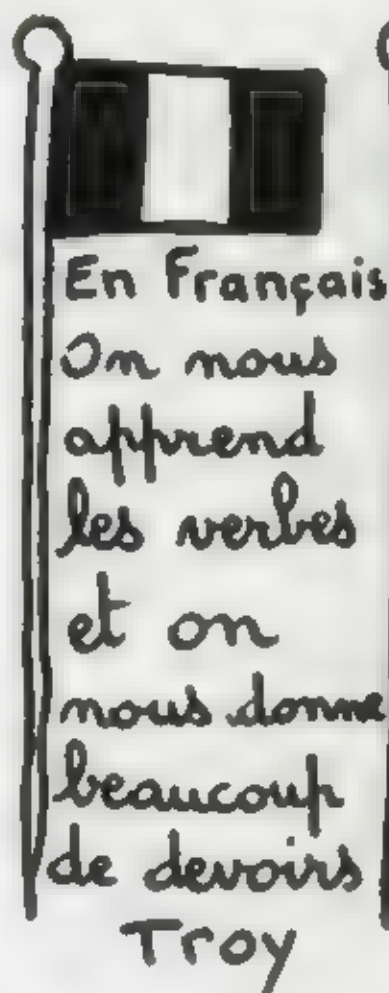 En Français
On nous
apprend
les verbes
et on
nous donne
beaucoup
de devoirs
Troy